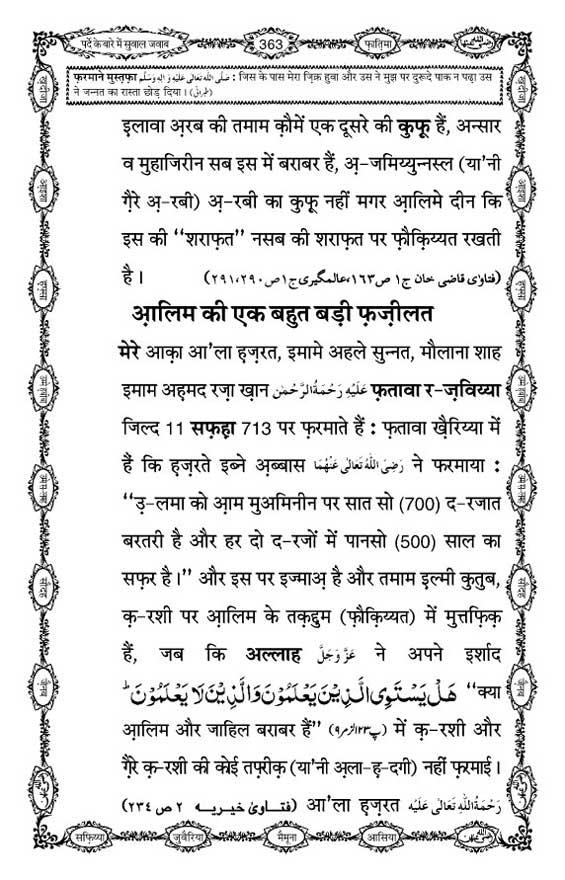 पर्दे के बारे में सुवाल जवाब
363
फ़ातिमा
फ़रमाने मुस्तफ़ा صَلَّى اللهُ تَعَالٰى عَلَيْهِ وَاٰلِهٖ وَسَلَّم : जिस के पास मेरा ज़िक्र हुवा और उस ने मुझ पर दुरूदे पाक न पढ़ा उस
ने जन्नत का रास्ता छोड़ दिया। (طبرانی)
इलावा अ़रब की तमाम क़ौमें एक दूसरे की कुफ़ू हैं, अन्सार
व मुहाजिरीन सब इस में बराबर हैं, अ़-जमिय्युन्नस्ल (या'नी
ग़ैरे अ़-रबी) अ़-रबी का कुफ़ू नहीं मगर आ़लिमे दीन कि
इस की ‘‘शराफ़त’’ नसब की शराफ़त पर फ़ौक़िय्यत रखती
है। (فتاوٰی قاضی خان ج ۱ ص ۱۶۳، عالمگیری ج ۱ ص ۲۹۰، ۲۹۱)
आ़लिम की एक बहुत बड़ी फ़ज़ीलत
मेरे आक़ा आ'ला हज़रत, इमामे अहले सुन्नत, मौलाना शाह
इमाम अहमद रज़ा ख़ान عَلَيْهِ رَحْمَةُ الرَّحْمٰن फ़तावा र-ज़विय्या
जिल्द 11 सफ़हा 713 पर फ़रमाते हैं : फ़तावा ख़ैरिय्या में
हैं कि हज़रते इब्ने अ़ब्बास رَضِىَ اللهُ تَعَالٰى عَنْهُمَا ने फ़रमाया :
‘‘उ़-लमा को आ़म मुअमिनीन पर सात सो (700) द-रजात
बरतरी है और हर दो द-रजों में पानसो (500) साल का
सफ़र है।’’ और इस पर इज्माअ़ है और तमाम इल्मी कुतुब,
क़-रशी पर आ़लिम के तक़द्दुम (फ़ौक़िय्यत) में मुत्तफ़िक़
हैं, जब कि अल्लाह عَزَّوَجَلَّ ने अपने इर्शाद
هَلْ يَسْتَوِى الَّذِيْنَ يَعْلَمُوْنَ وَالَّذِيْنَ لَا يَعْلَمُوْنَ ؕ ‘‘क्या
आ़लिम और जाहिल बराबर हैं’’ (پ۲۳، الزمر ۹) में क़-रशी और
ग़ैरे क़-रशी की कोई तफ़रीक़ (या'नी अ़ला-ह़-दगी) नहीं फ़रमाई।
(فتاویٰ خیریہ ۲ ص ۲۳۴) आ'ला हज़रत رَحْمَةُ اللهِ تَعَالٰى عَلَيْهِ
सफ़िय्या
जुवैरिया
मैमूना
आसिया